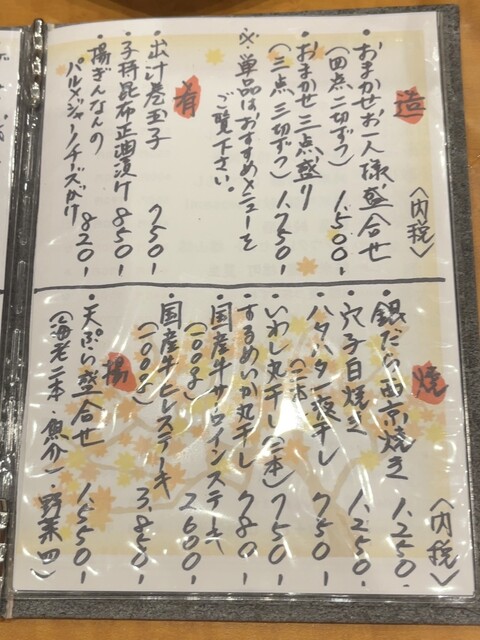 造
〈内税〉
・おまかせお一人様盛合せ
(四点二切ずつ) 1.500-
・おまかせ三点盛り
(三点三切ずつ) 1.750-
※単品はおすすめメニューを
ご覧下さい。
肴
・出汁巻玉子 750-
・子持昆布正油漬け 850-
・揚ぎんなんの
パルメジャーノチーズがけ 820-
焼
〈内税〉
・銀だら西京焼き 1.250-
・穴子白焼き 1.250-
・ハタハタ一夜干し
(二本) 750-
・いわし丸干し(二本) 750-
・するめいか丸干し 780-
・国産牛サーロインステーキ
(100g) 2600-
・国産牛ヒレステーキ
(100g) 3.850-
揚
・天ぷら盛合せ 1.550-
(海老二本・魚介・野菜四)